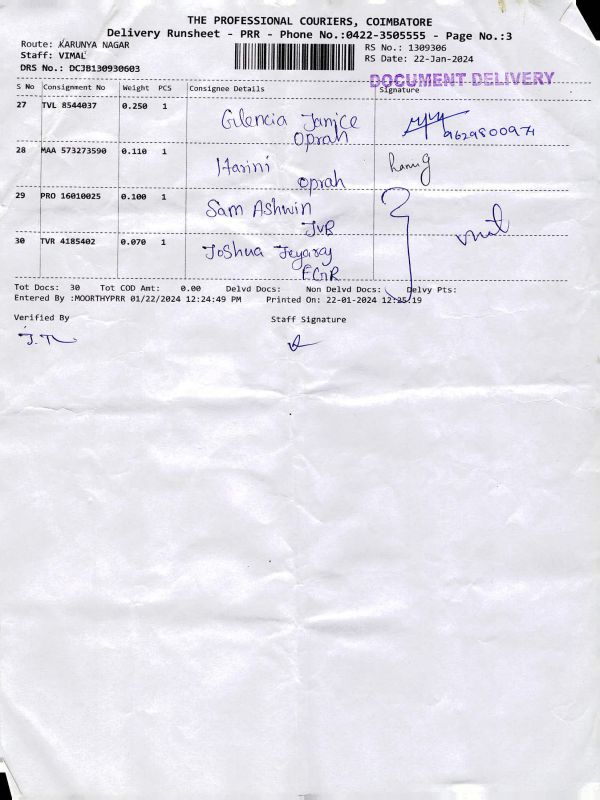 THE PROFESSIONAL COURIERS, COIMBATORE
Delivery Runsheet - PRR - Phone No.:0422-3505555 - Page No.:3
Route: KARUNYA NAGAR
RS No.: 1309306
Staff: VIMAL
RS Date: 22-Jan-2024
DRS No.: DCJB130930603
DOCUMENT DELIVERY
S No Consignment No Weight PCS Consignee Details Signature
27 TVL 8544037 0.250 1 Glencia Janice
Oprah
9629800971
28 MAA 573273590 0.110 1 Harini
Oprah
29 PRO 16010025 0.100 1 Sam Ashwin
JVR
30 TVR 4185402 0.070 1 Joshua Jeyaraj
EGR
Tot Docs: 30 Tot COD Amt: 0.00 Delvd Docs: Non Delvd Docs: Delvy Pts:
Entered By :MOORTHYPRR 01/22/2024 12:24:49 PM Printed On: 22-01-2024 12:25:19
Verified By Staff Signature